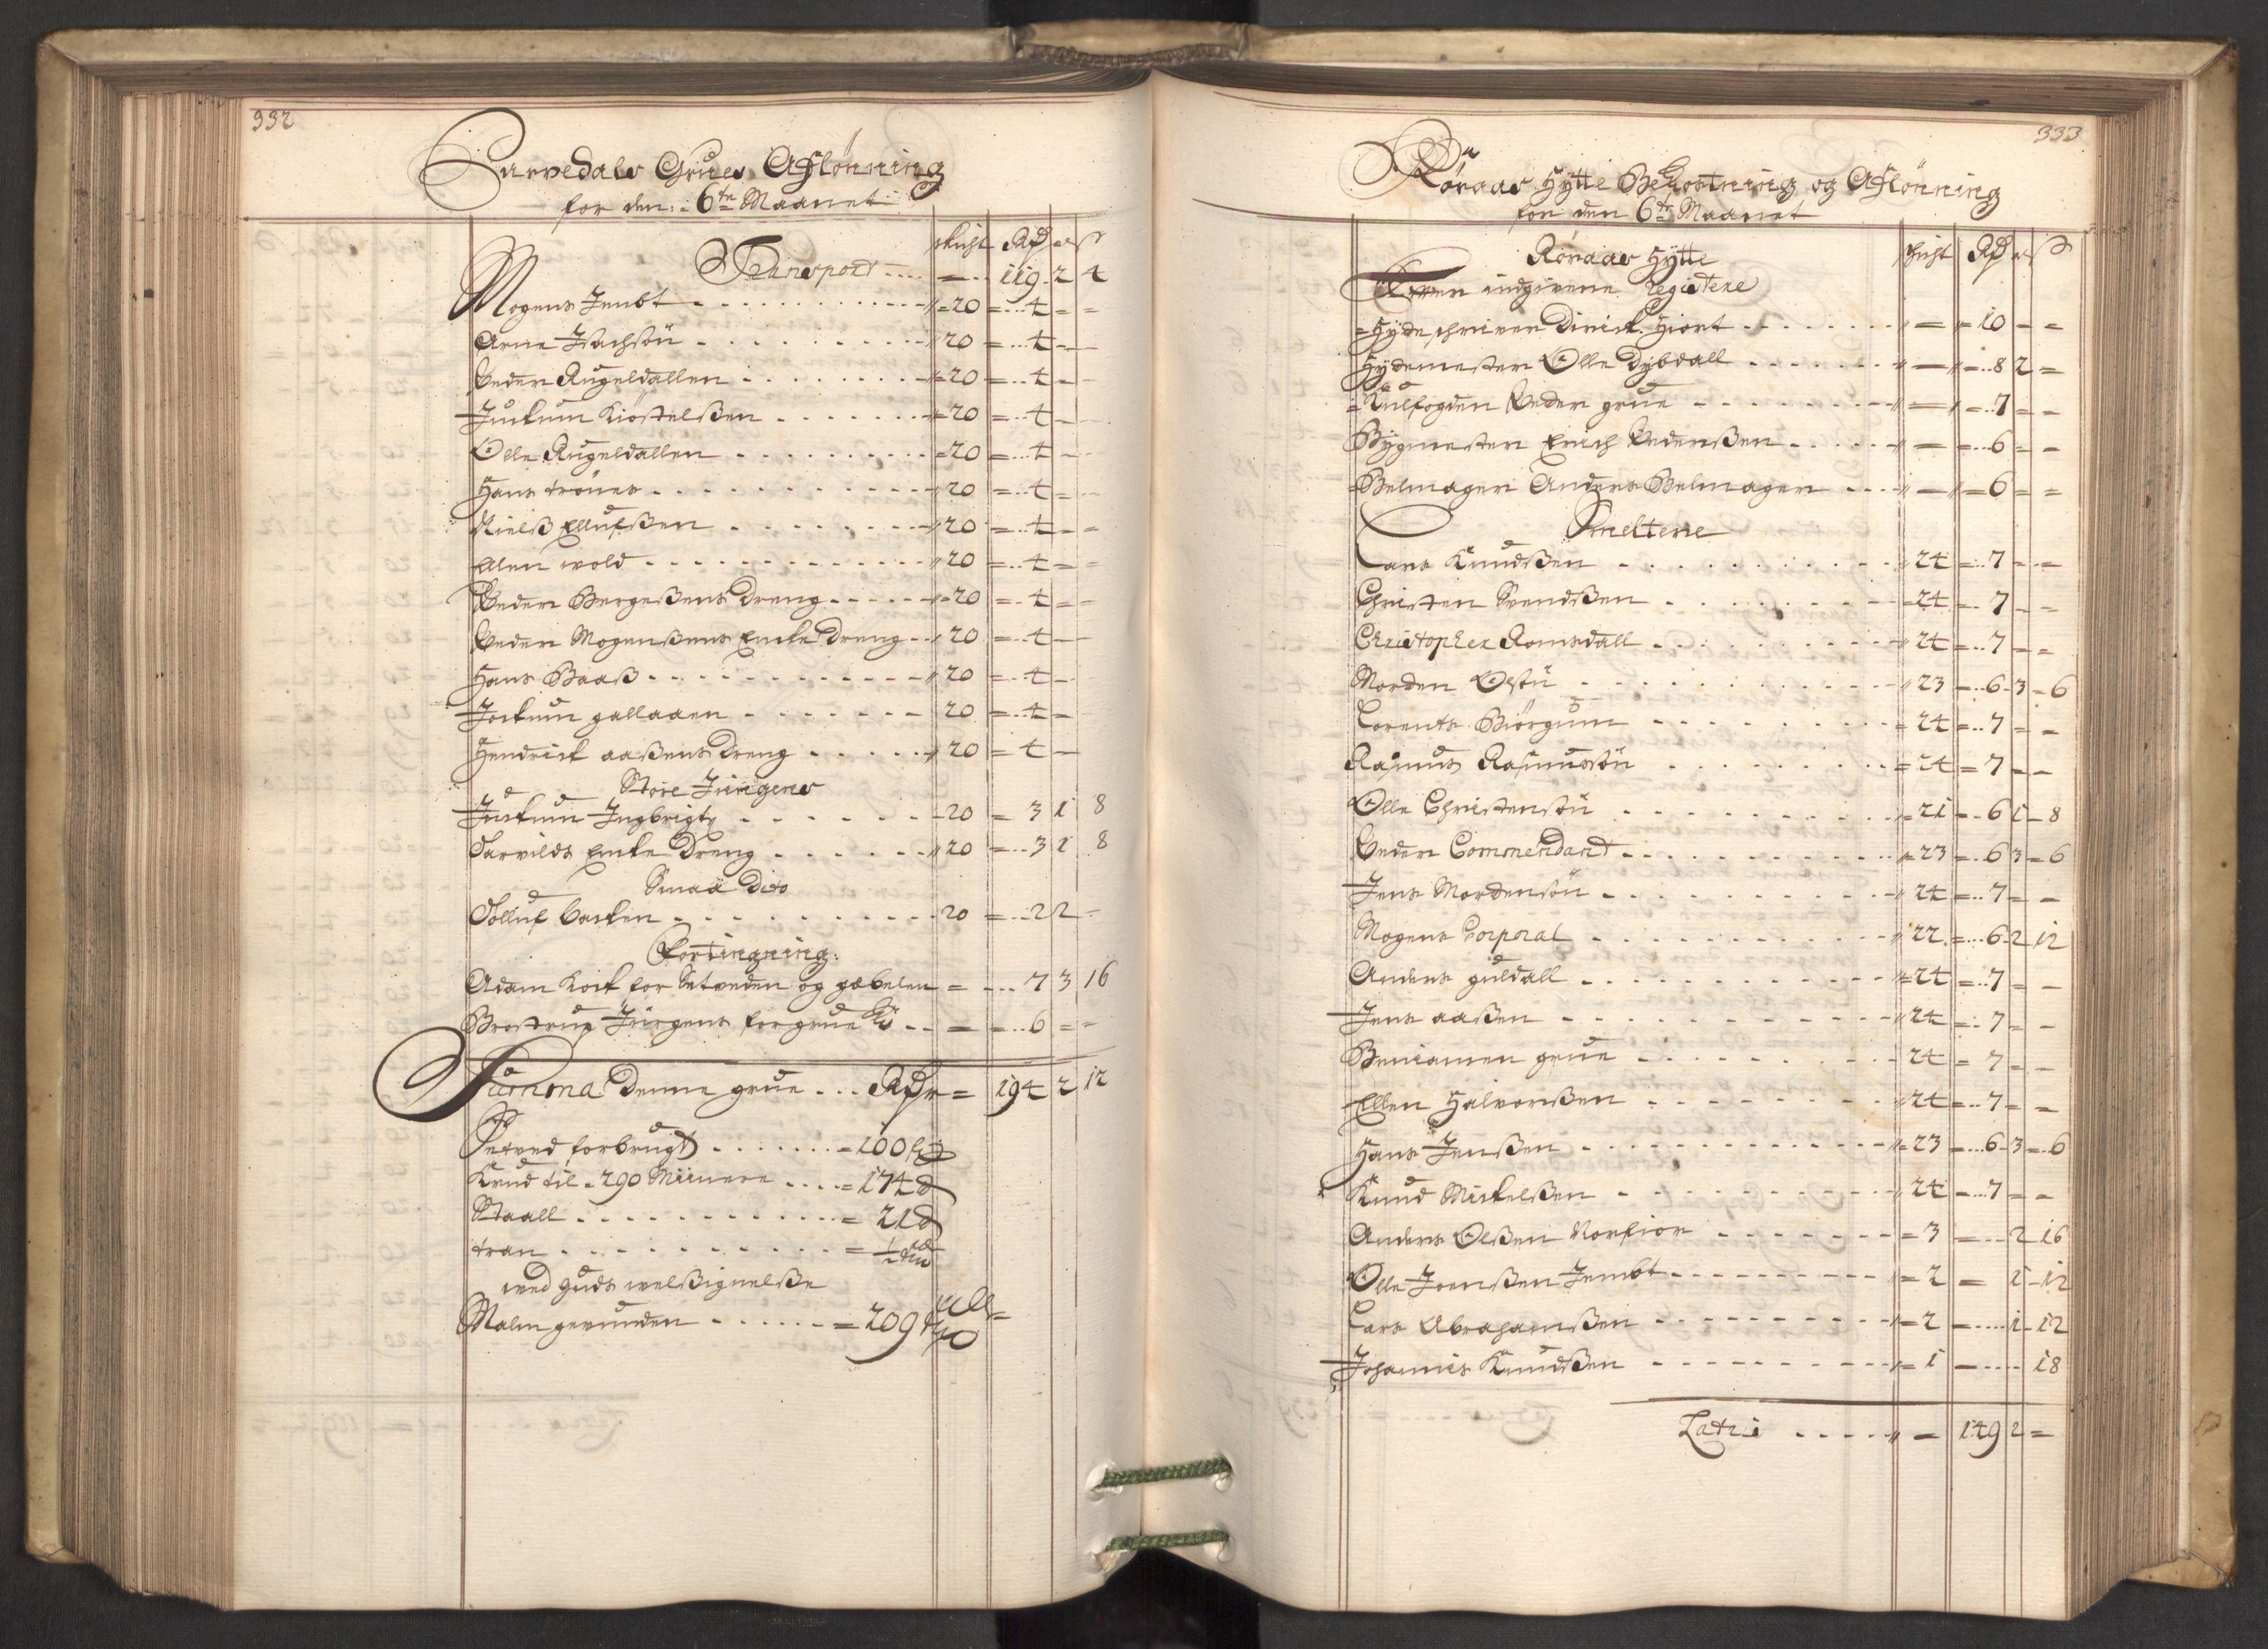 332
Gruves Afslønning
for den: 6te Maanet
schicht Rdr ort ß
Transport - - - - 119 2 4
Mogens Jembt - - - 20 = 4 = =
Arne Isachsøn - - - 20 = 4 - -
Peder Rugeldallen - - - 20 = 4 - -
Jockum Kiøstelßen - - - 20 = 4 -
Olle Rugeldallen - - - 20 = 4 - -
Hans trønes - - - 20 = 4 = -
Nielß Ellufßen - - - 20 = 4 - =
Elen wold - - - 20 = 4 = -
Peder Bergeßens Dreng - - - 20 = 4 = -
Peder Mogenßens Encke Dreng - - 20 = 4 -
Hans Baaß - - - 20 = 4 -
Jockum gallaaen - - - 20 = 4 =
Hendrick aaßens Dreng - - - 20 = 4 -
Store Jungens
Jockum Ingbrigtz - - - 20 = 3 1 8
Tarvilds Encke Dreng - - - 20 = 3 1 8
Smaa Dito
Tolluf backen - - - 20 = 2 2 -
Fortingning:
Adam Kock for Setveden og gøbelen = - - - 7 3 16
Brostrup Jürgens for grue - - - = 6 = =
Summa Denne grue - - - Rdr = 194 2 12
Setved forbrugt - - - = 100 f
Krud til 290 Miinere - - - = 174
Staall - - - = 21
tran - - - = 1/2
wed guds welßignelße
Malm gevunden - - - = 209
333
Røraas Hytte Bekostning og Afslønning
for den 6te Maanet
Røraas Hytte schicht Rdr ort ß
indgivene Registere
Hydeschriver Dirick Hiort - - - = 10 - =
Hydemester Olle Dybdall - - - = 8 2 =
Kulfogden Peder grue - - - = 7 = -
Bygmester Erich Pederßen - - - = 6 = -
Belmager Anders Belmager - - - = 6 = =
Smeltere
Lars Knudßen - - - 24 = 7 - =
Christen Svendßen - - - 24 = 7 - =
Christopher Romsdall - - - 24 = 7 - =
Morden Olsøn - - - 23 = 6 3 6
Lorents Biørgum - - - 24 = 7 = -
Rasmus Rasmussøn - - - 24 = 7 - -
Olle Christensøn - - - 21 = 6 1 8
Peder Commendant - - - 23 = 6 3 6
Jens Mordensøn - - - 24 = 7 = -
Mogens Corporal - - - 22 = 6 2 12
Anders guldall - - - 24 = 7 = -
Jens aaßen - - - 24 = 7 = -
Beniamen grue - - - 24 = 7 = -
Ellen Halvorßen - - - 24 = 7 = =
Hans Jenßen - - - 23 = 6 3 6
Knud Mickelßen - - - 24 = 7 = =
Anders Olßen Norfior - - - 3 = - 2 16
Olle Joenßen Jembt - - - 2 = 1 12
Lars Abrahamßen - - - 2 = 1 12
Johannis Knudßen - - - 1 = - 18
Latri - - - = 149 2 =